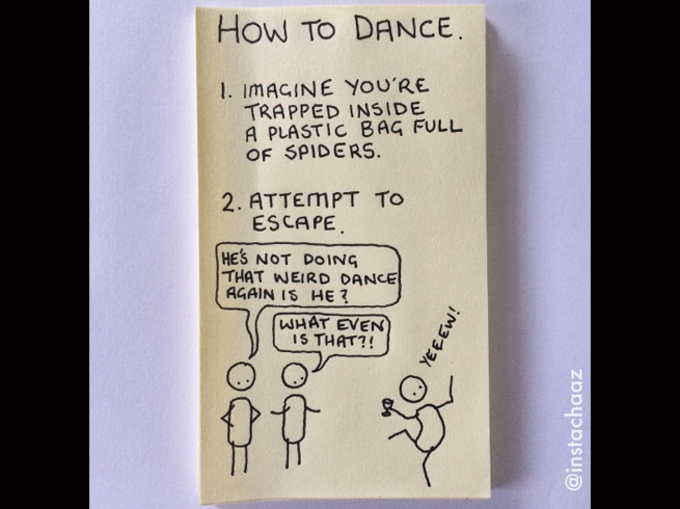 HOW TO DANCE.
1. IMAGINE YOU'RE
TRAPPED INSIDE
A PLASTIC BAG FULL
OF SPIDERS.
2. ATTEMPT TO
ESCAPE.
HE'S NOT DOING
THAT WEIRD DANCE
AGAIN IS HE?
WHAT EVEN
IS THAT?!
YEEEW!
@instachaaz